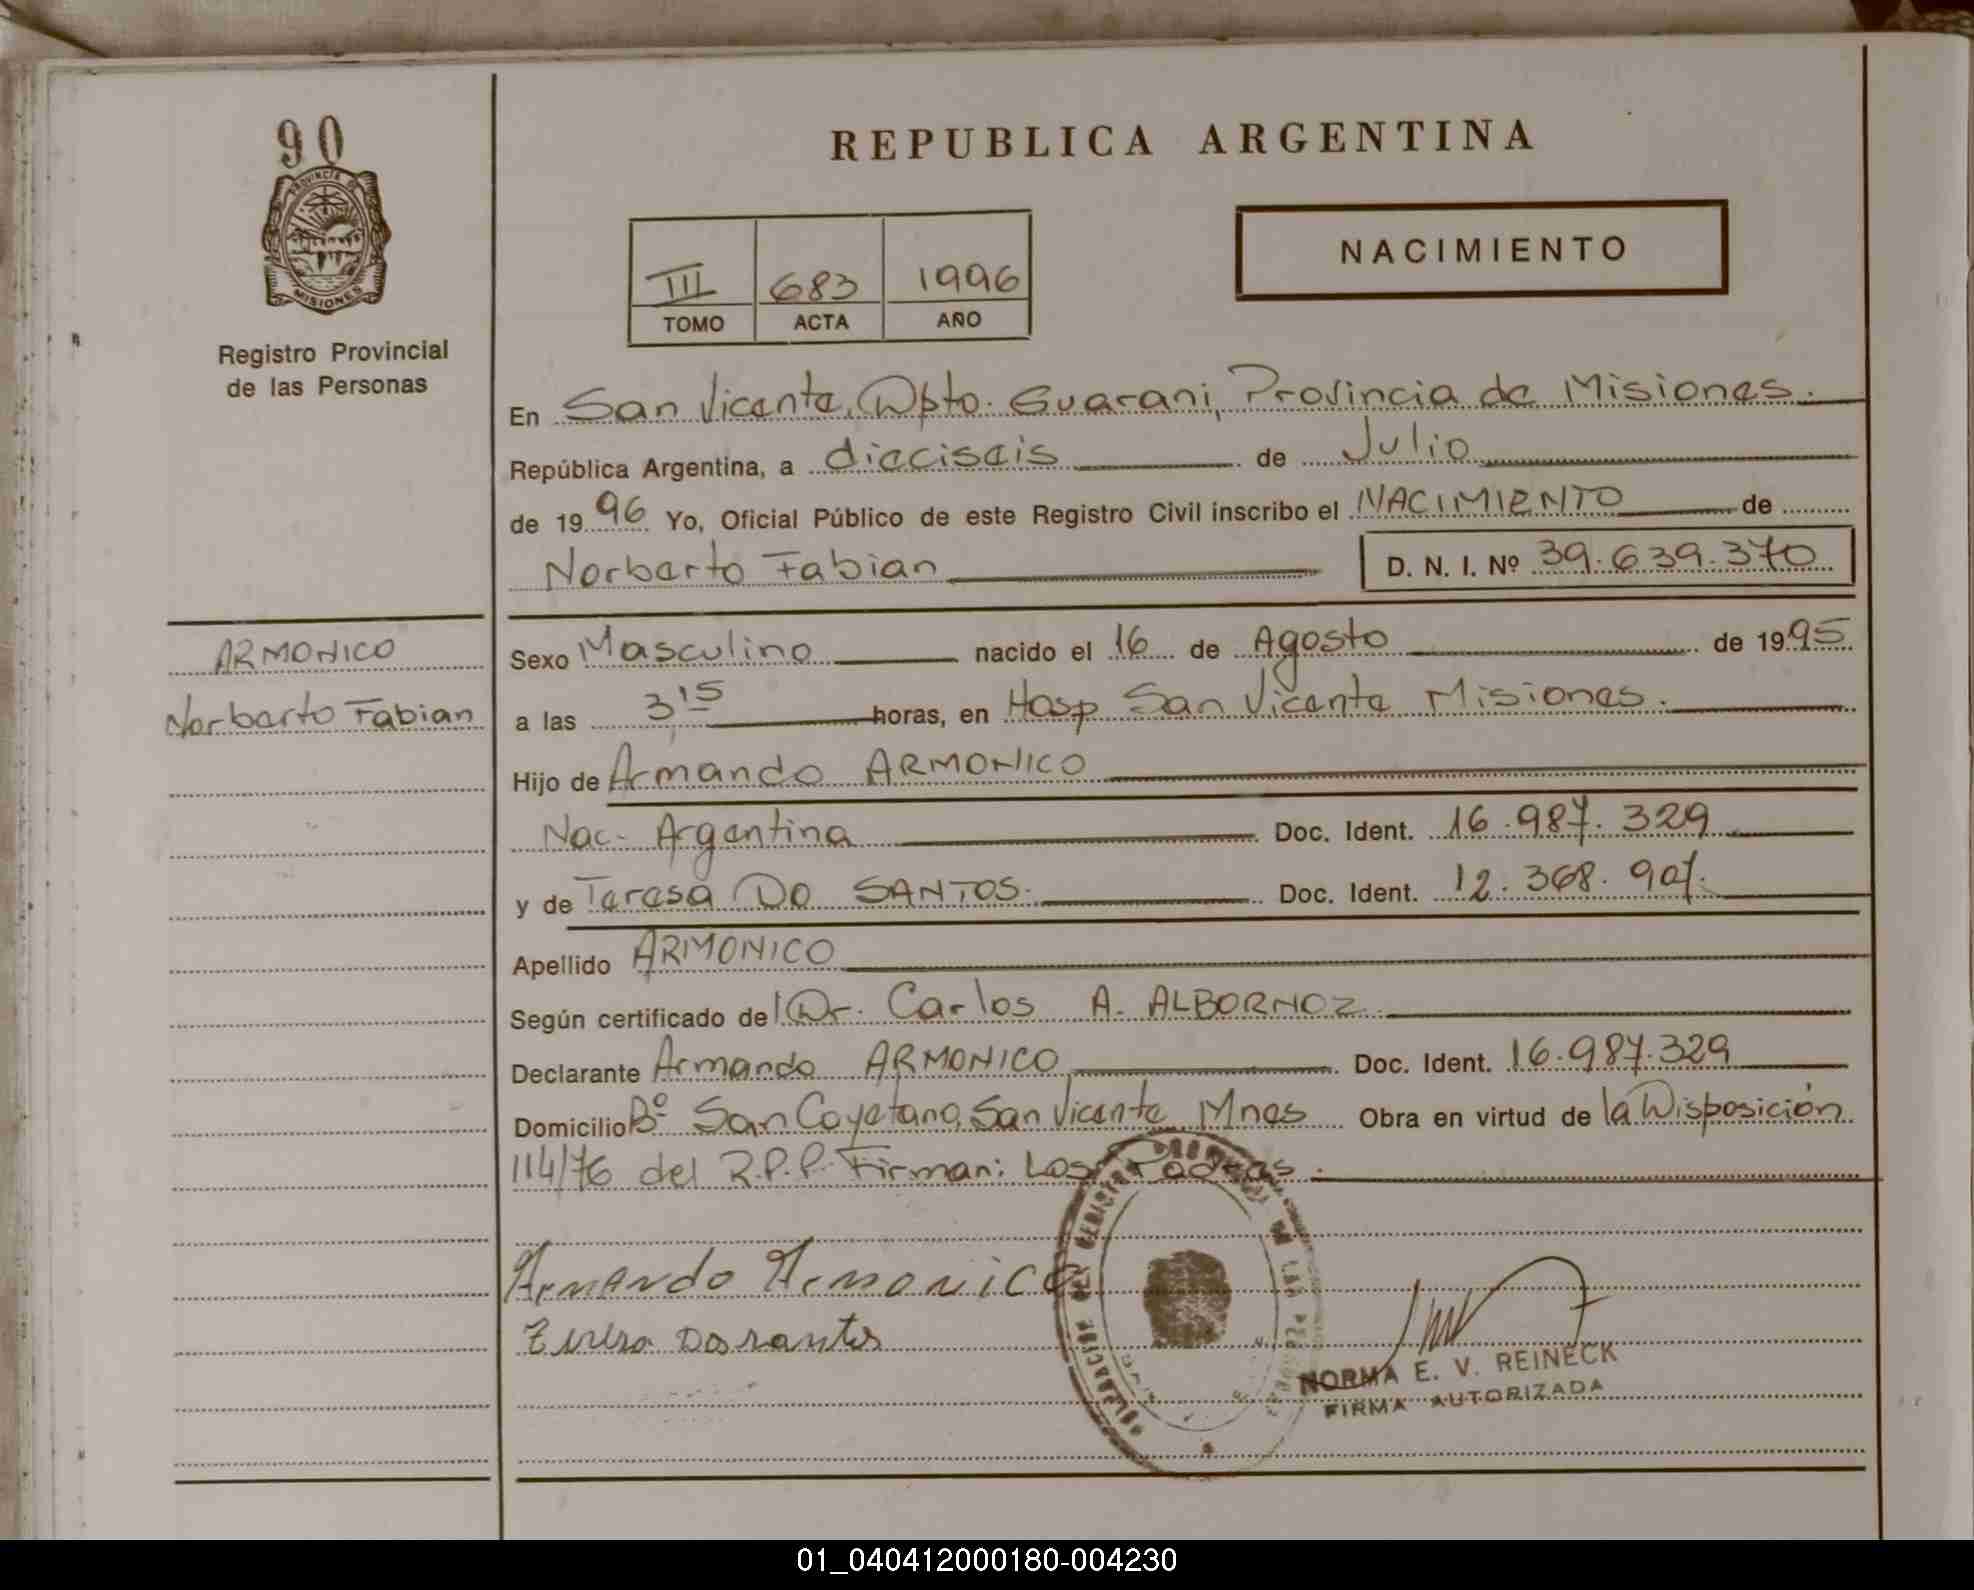 90
PROVINCIA DE
MISIONES
Registro Provincial
de las Personas
REPUBLICA ARGENTINA
NACIMIENTO
III 683 1996
TOMO ACTA AÑO
En San Vicente, Dpto. Guarani, Provincia de Misiones.
República Argentina, a dieciseis de Julio
de 1996 Yo, Oficial Público de este Registro Civil inscribo el NACIMIENTO de
Norberto Fabian D. N. I. Nº 39.639.370
ARMONICO
Norberto Fabian
Sexo Masculino nacido el 16 de Agosto de 1995
a las 3,15 horas, en Hosp San Vicente Misiones.
Hijo de Armando ARMONICO
Nac- Argentina Doc. Ident. 16.987.329
y de Teresa DO SANTOS. Doc. Ident. 12.368.907.
Apellido ARMONICO
Según certificado de Dr. Carlos A. ALBORNOZ.
Declarante Armando ARMONICO Doc. Ident. 16.987.329
Domicilio Bº San Cayetano, San Vicente Mnes Obra en virtud de la Disposición
114/76 del R.P.P. Firman: Los Padres.
Armando Armonico
Dosantos
NORMA E. V. REINECK
FIRMA AUTORIZADA
01_040412000180-004230